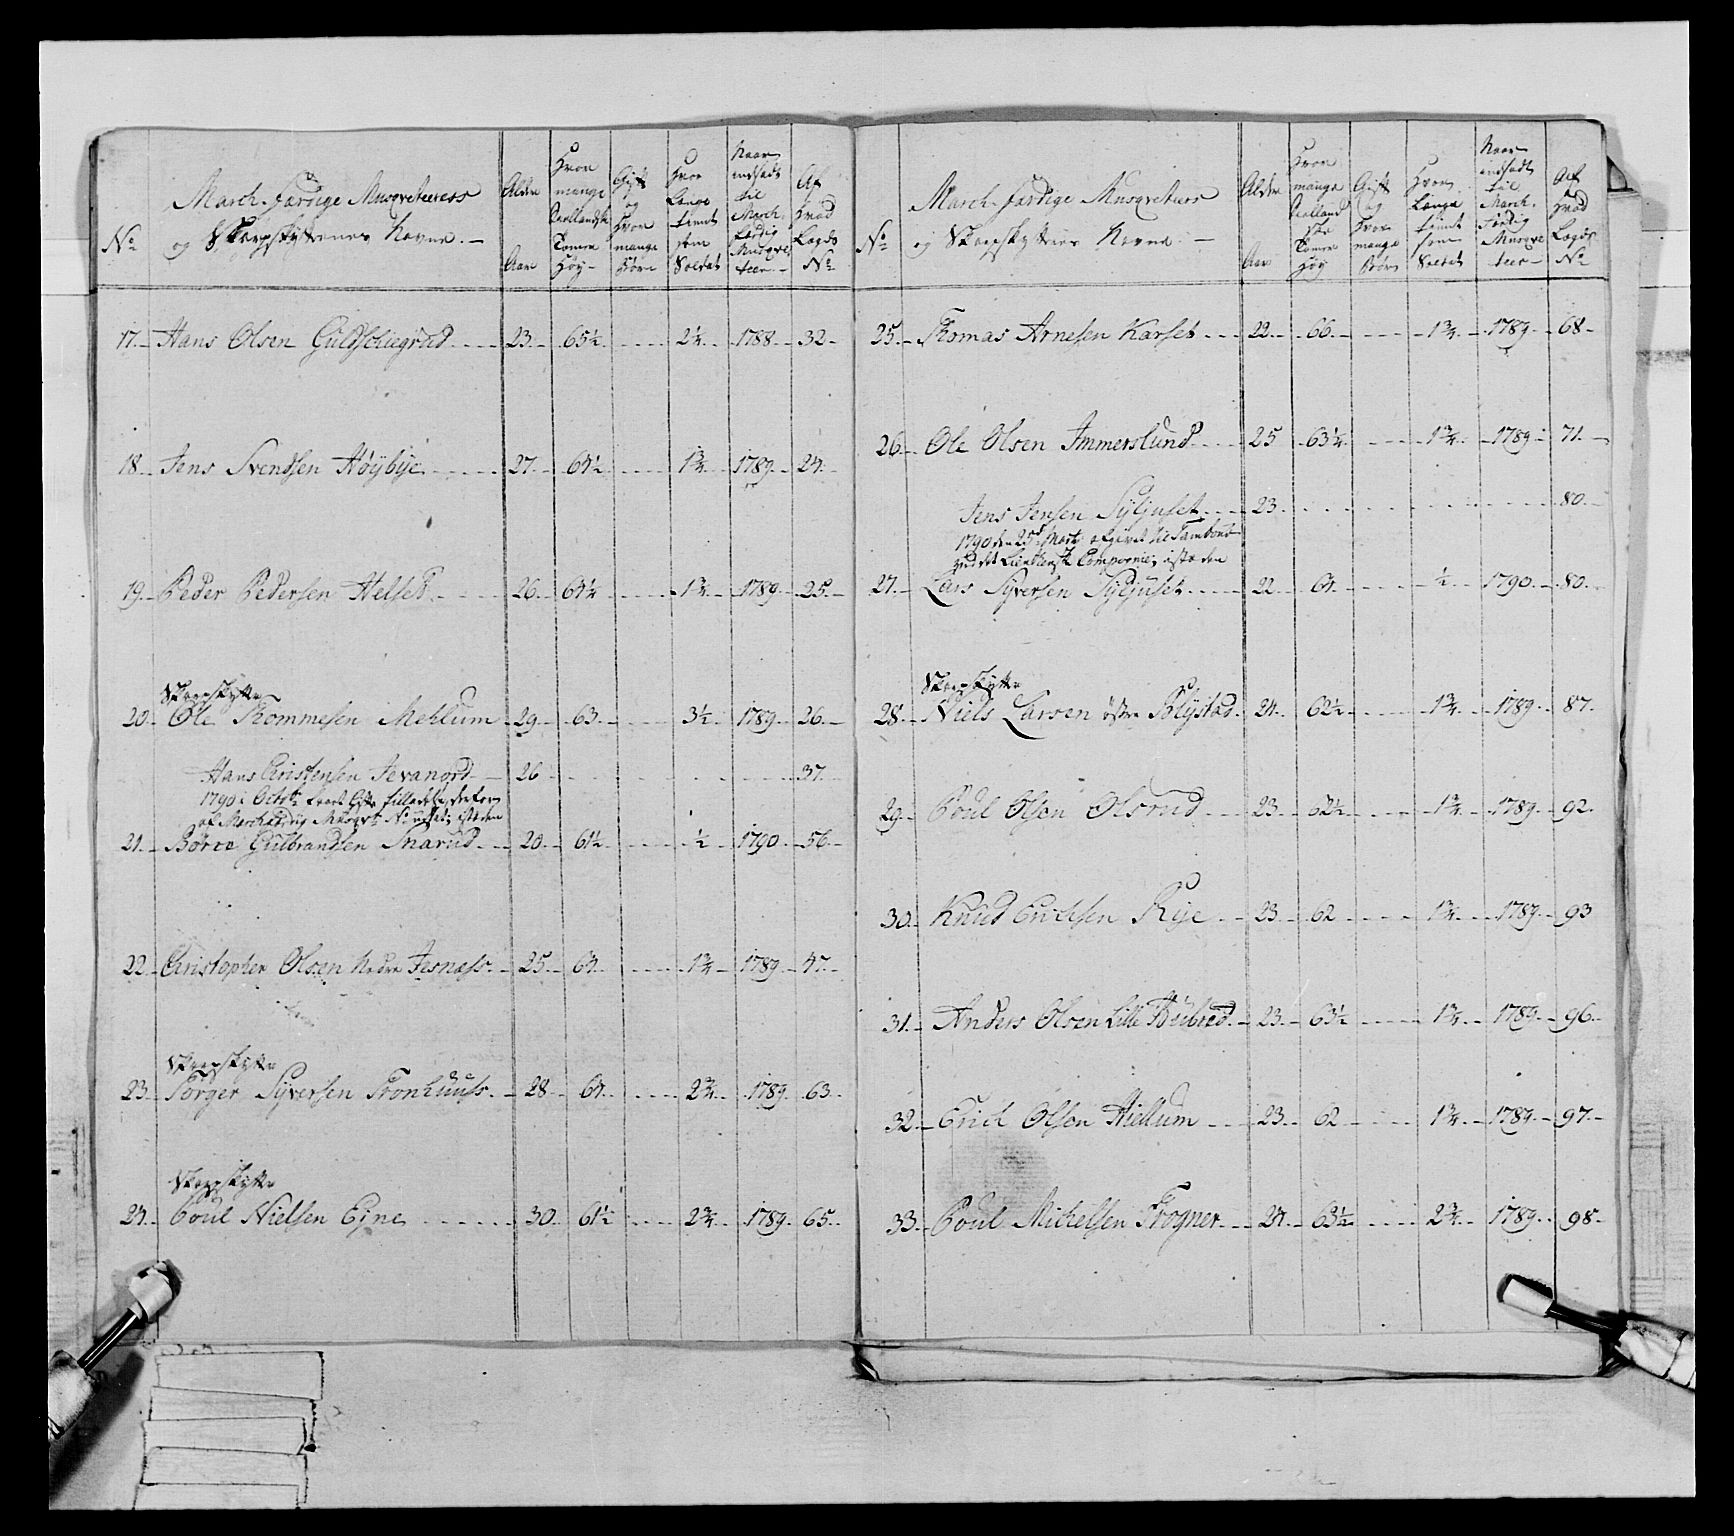 No
March-færdige Musqveteerers
og Skarpskytternes Navne.
Alder
Aar
Hvor
mange
Siællandske
Tomer
Høy
Gift
og
Hvor
mange
Børn
Hvor
Længe
tient
som
Soldat
Naar
indsadt
til
March-
færdig
Musqve
teer
Af
hvad
Lægds
No
17. Hans Olsen Guldschiegrud 23. 65½ 2¼ 1788. 32.
18. Jens Svendsen Høÿbÿe 27. 64½ 1¾ 1789. 24.
19. Peder Pedersen Helset 26. 64¼ 1¾ 1789. 25.
Skarpskytter
20. Ole Thommesen Mehlum 29. 63. 3½ 1789. 26.
Hans Christensen Jevanord 26 37.
1790 i Octobr
af Marchfærdig Musqvt No isteden
21. Børre Gulbrandsen Snarud 20. 61½ ½ 1790. 56.
22. Christopher Olsen Nedre Jesnæss 25. 64. 1¾ 1789. 47.
Skarpskytter
23. Torger Sÿversen Tronhuuss 28. 64. 2¾ 1789. 63.
Skarpskytter
24. Poul Nielsen Ejne 30. 61½ 2¾ 1789. 65.
No
March-færdige Musqveteers
og Skarpskytters Navne.
Alder
Aar
Hvor
mange
Siælland
ske
Tomer
høy
Gift
og
Hvor
mange
Børn
Hvor
Længe
tient
som
Soldat
Naar
indsadt
til
March-
færdig
Musqve
teer
Af
hvad
Lægds
No
25. Thomas Arnesen Karset 22. 66. 1¾ 1789. 68.
26. Ole Olsen Immerslund 25 63¼ 1¾ 1789. 71.
Jens Jensen Sÿljuset 23. 80.
1790 den 25de Marti afgivet til Tambour
ved det Compagnie, isteden
27. Lars Sÿversen Sÿljuset 22. 64. ½ 1790. 80.
Skarpskytter
28. Niels Larsen østre Blÿstad 24. 62½ 1¾ 1789. 87.
29. Poul Olsen Olsrud 23. 62½ 1¾ 1789. 92.
30. Knud Erichsen Rije 23. 62 1¾ 1789. 93
31. Anders Olsen Lille 23. 63½ 1¾ 1789. 96.
32. Erich Olsen Hiellum 23. 62 1¾ 1789. 97.
33. Poul Michelsen Frogner 24. 63½ 2¾ 1789. 98.